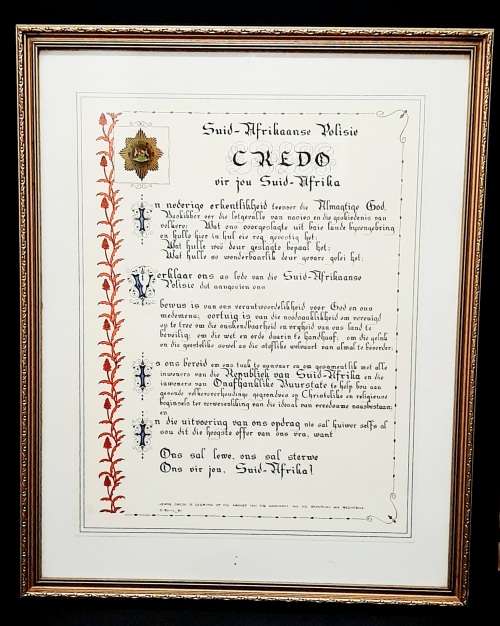 Suid-Afrikaanse Polisie
CREDO
vir jou Suid-Afrika
In nederige erkentlikheid teenoor die Almagtige God,
Beskikker oor die lotgevalle van nasies en die geskiedenis van
volkere; Wat ons voorgeslagte uit baie lande byeengebring
en hulle hier in hul eie reg gevestig het;
Wat hulle weë deur geslagte bepaal het;
Wat hulle so wonderbaarlik deur gevare gelei het;
Verklaar ons as lede van die Suid-Afrikaanse
Polisie dat aangesien ons
bewus is van ons verantwoordelikheid voor God en ons
medemens; oortuig is van die noodsaaklikheid om verenigd
op te tree om die onskendbaarheid en vryheid van ons land te
beveilig; om die wet en orde daarin te handhaaf; om die geluk
en die geestelike sowel as die stoflike welvaart van almal te bevorder;
Is ons bereid om ons taak te aanvaar en om gesamentlik met alle
inwoners van die Republiek van Suid-Afrika en die
inwoners van Onafhanklike Buurstate te help bou aan
gesonde volkereverhoudinge gegrond op Christelike en religieuse
beginsels ter verwesenliking van die ideaal van vreedsame naasbestaan;
en
In die uitvoering van ons opdrag nie sal huiwer selfs al
sou dit die hoogste offer van ons vra, want
Ons sal lewe, ons sal sterwe
Ons vir jou, Suid-Afrika!